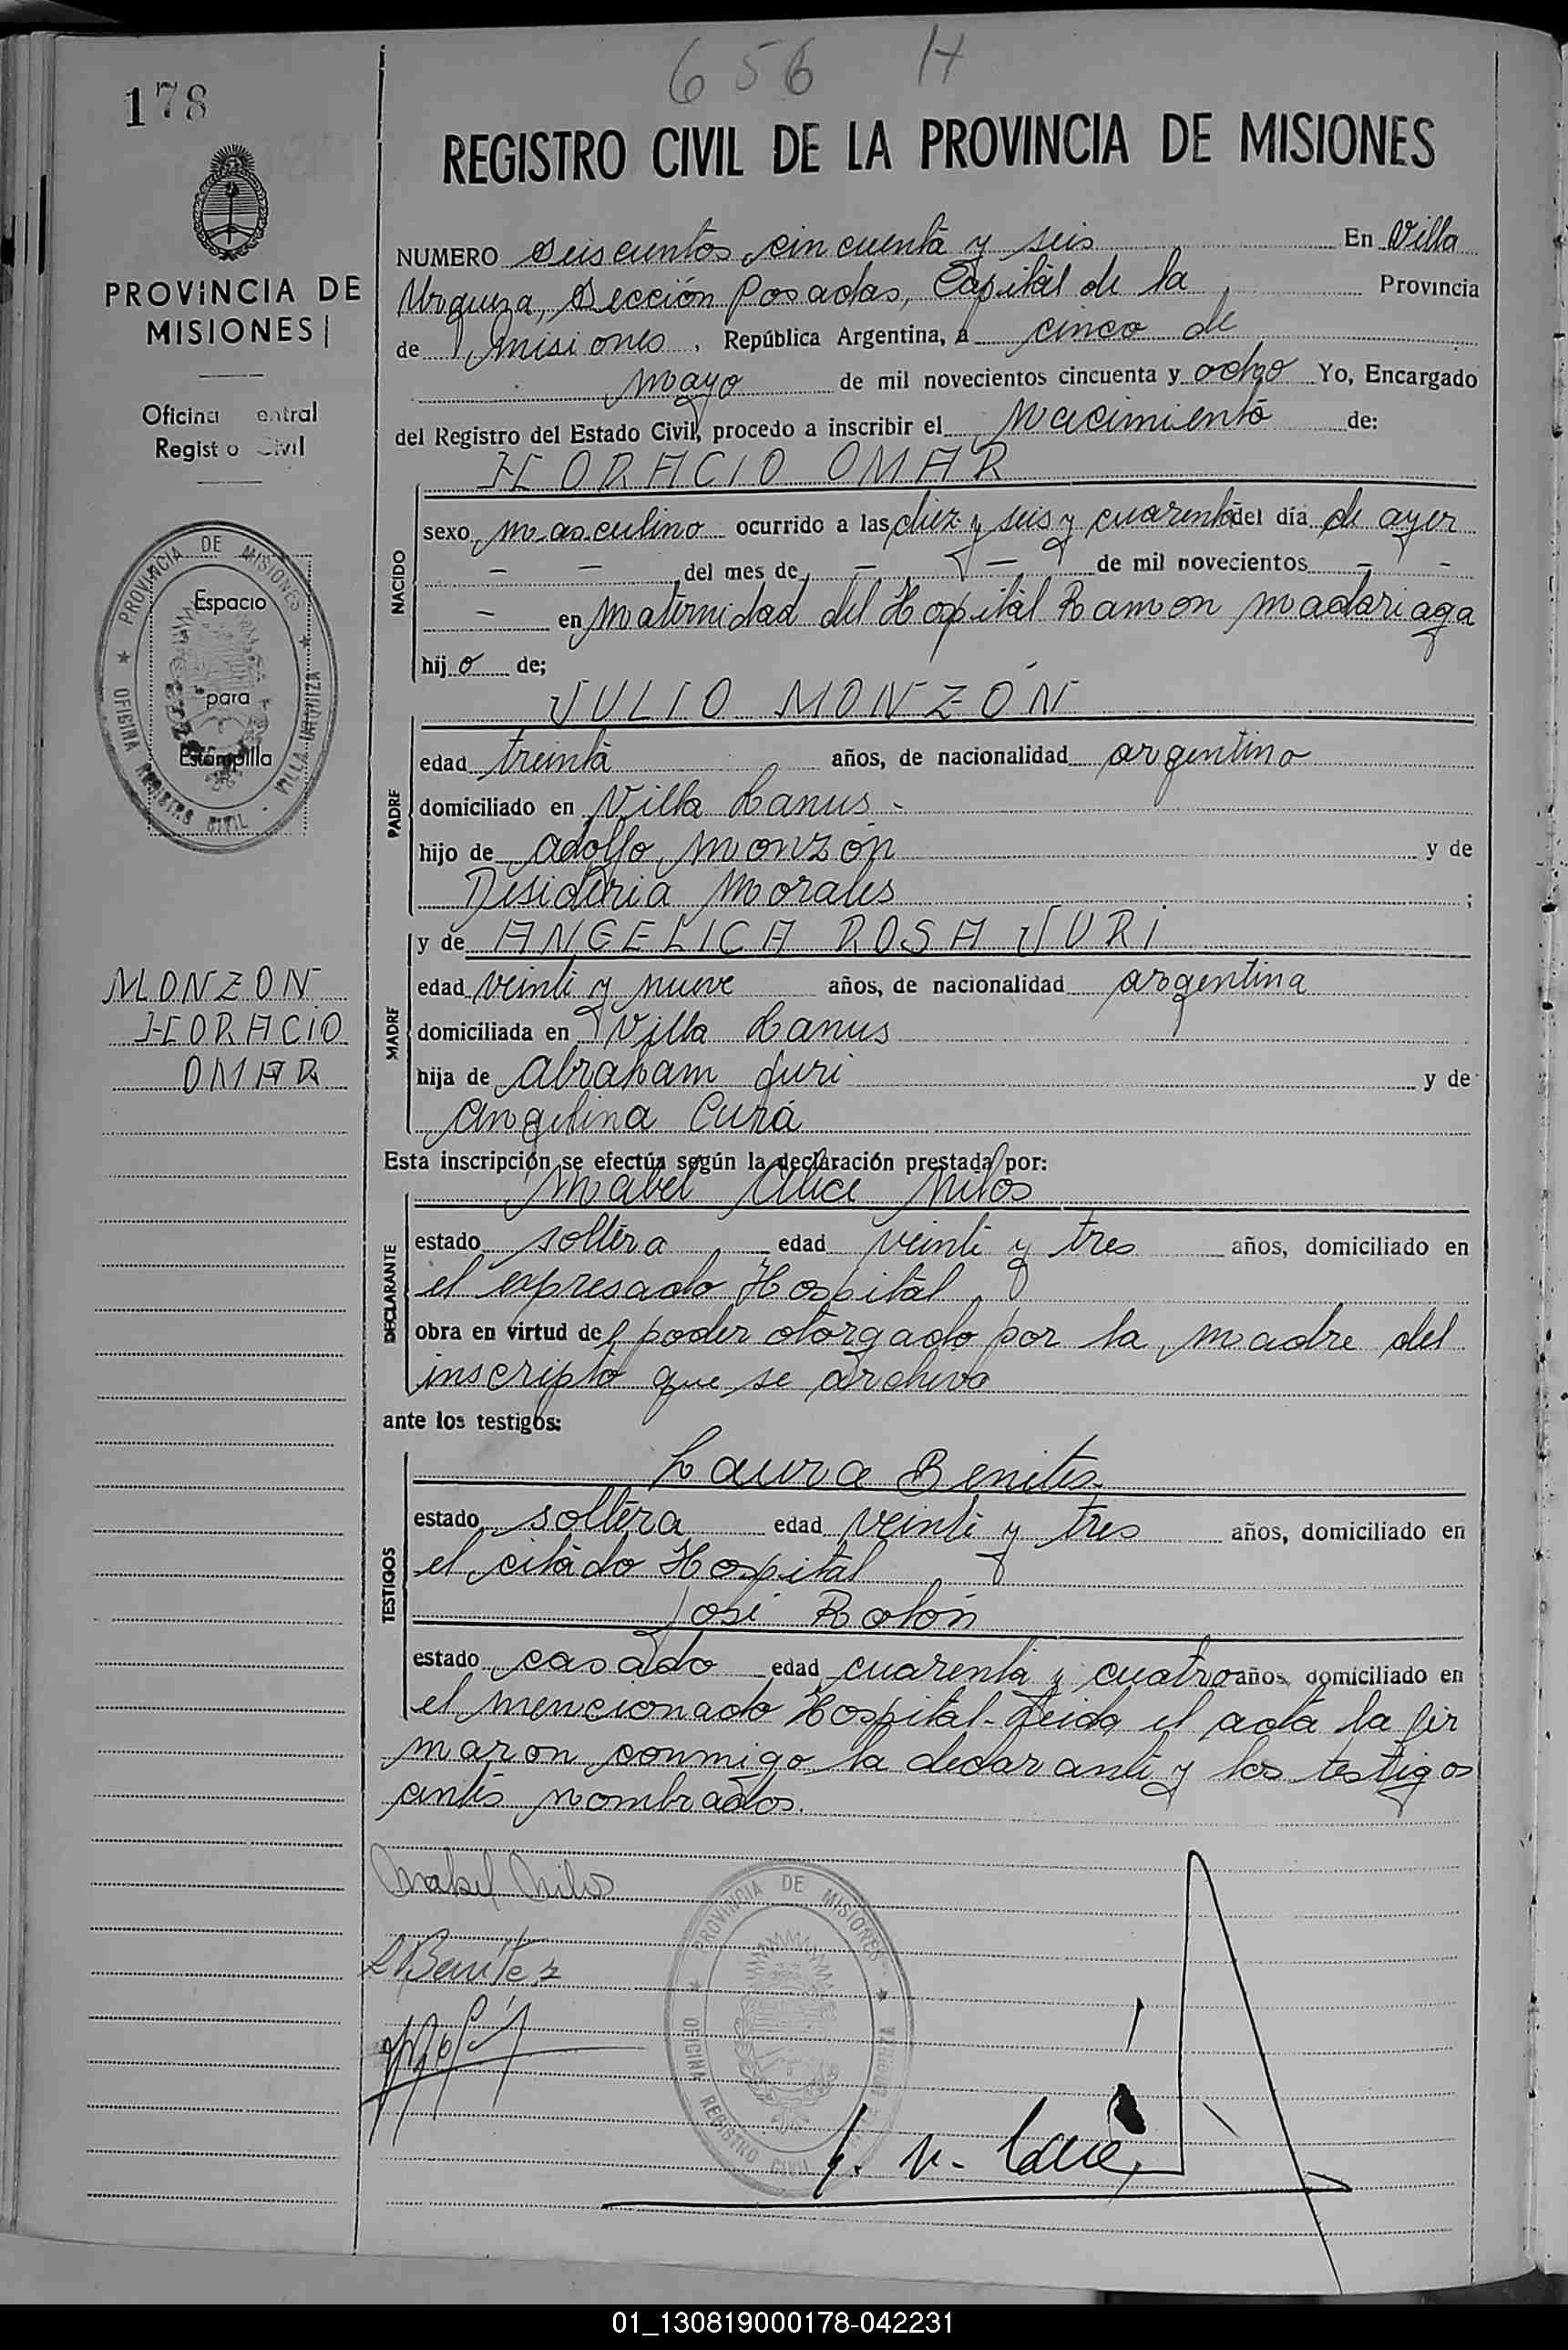 656 H
178
REGISTRO CIVIL DE LA PROVINCIA DE MISIONES
PROVINCIA DE
MISIONES
Oficina entral
Regist o Civil
PROVINCIA DE MISIONES
OFICINA REGISTRO CIVIL - VILLA URQUIZA
Espacio
para
Estampilla
MONZON
HORACIO
OMAR
NUMERO seiscientos cincuenta y seis En Villa
Urquiza, Sección Posadas, Capital de la Provincia
de Misiones, República Argentina, a cinco de
mayo de mil novecientos cincuenta y ocho Yo, Encargado
del Registro del Estado Civil, procedo a inscribir el Nacimiento de:
HORACIO OMAR
NACIDO
sexo masculino ocurrido a las diez y seis y cuarenta del día de ayer
- - del mes de - - de mil novecientos - -
- en Maternidad del Hospital Ramon Madariaga
hijo de;
JULIO MONZÓN
PADRE
edad treinta años, de nacionalidad argentino
domiciliado en Villa Lanus -
hijo de Adolfo Monzón y de
Desideria Morales ;
y de ANGELICA ROSA JURI
MADRE
edad veinti y nueve años, de nacionalidad argentina
domiciliada en Villa Lanus
hija de Abraham Juri y de
Angelina Curá
Esta inscripción se efectúa según la declaración prestada por:
Mabel Alice Milos
DECLARANTE
estado soltera edad veinti y tres años, domiciliado en
el expresado Hospital
obra en virtud del poder otorgado por la madre del
inscripto que se archiva
ante los testigos:
Laura Benites
TESTIGOS
estado soltera edad veinti y tres años, domiciliado en
el citado Hospital
José Rolón
estado casado edad cuarenta y cuatro años domiciliado en
el mencionado Hospital - Leida el acta la fir
maron conmigo la declarante y los testigos
antes nombrados.
Mabel Milos
L Benítez
PROVINCIA DE MISIONES
OFICINA REGISTRO CIVIL
01_130819000178-042231